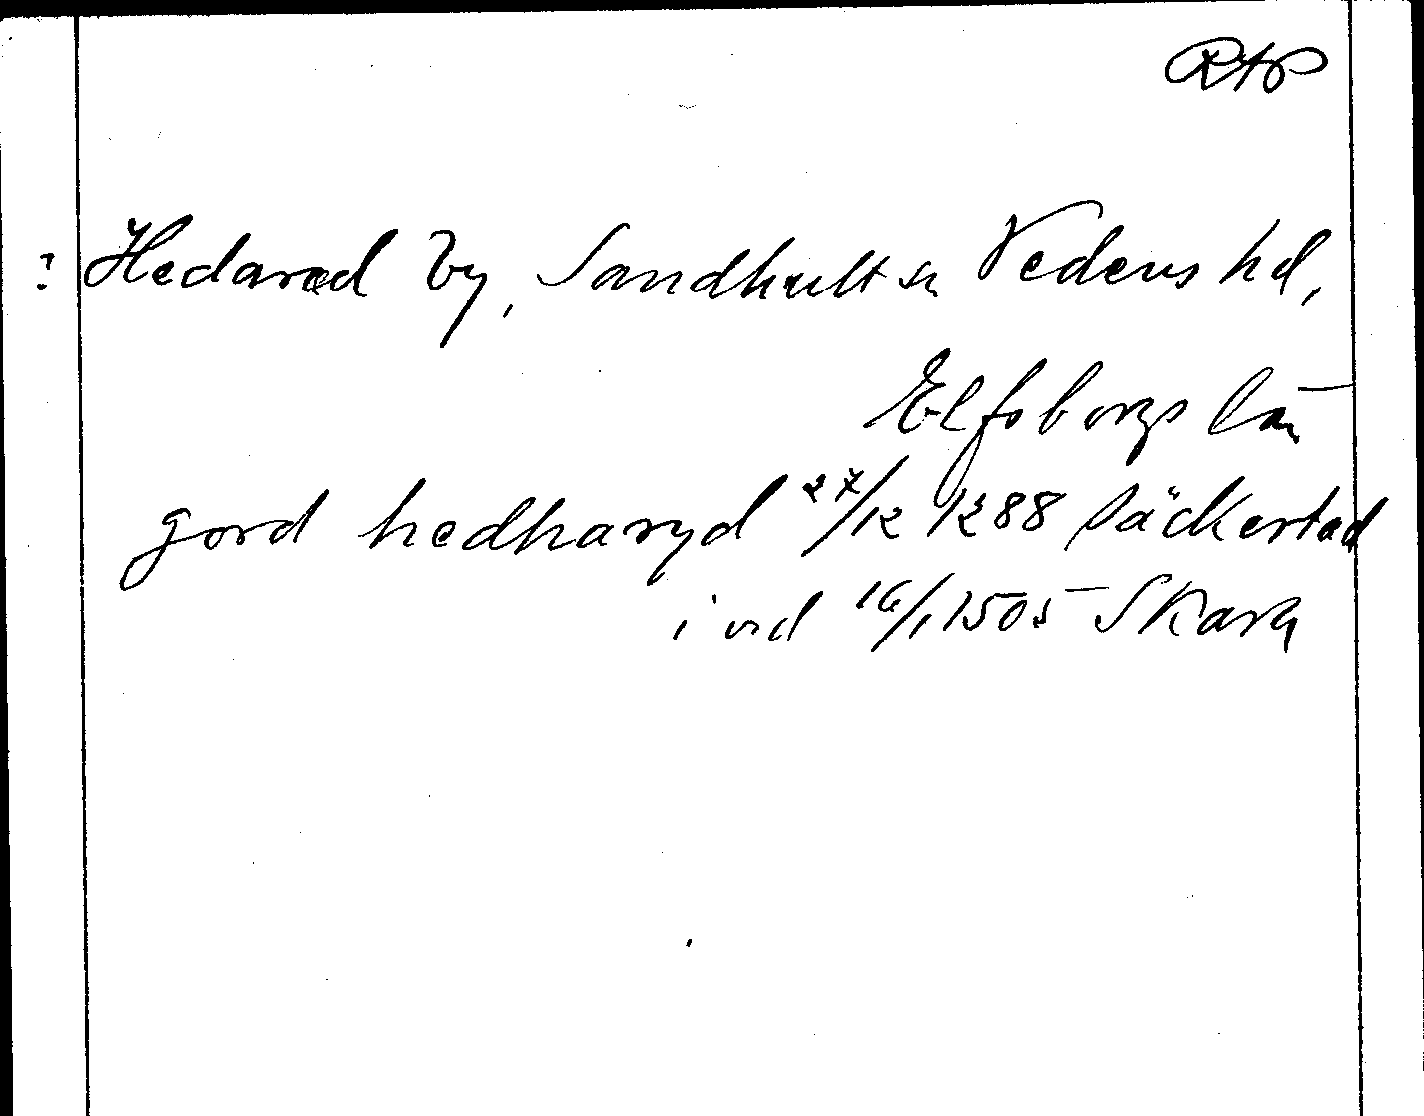 RAP
? Hedared by, Sandhult sn Vedens hd,
Elfsborgs län
gord hedharyd 27/12 1288 Säckestad
i vid 16/1 1505 Skara